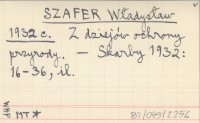 SZAFER Władysław
1932 c. Z dziejów ochrony
przyrody. — Skarby 1932:
16-36, il.
WHF MT* 87/049/2256